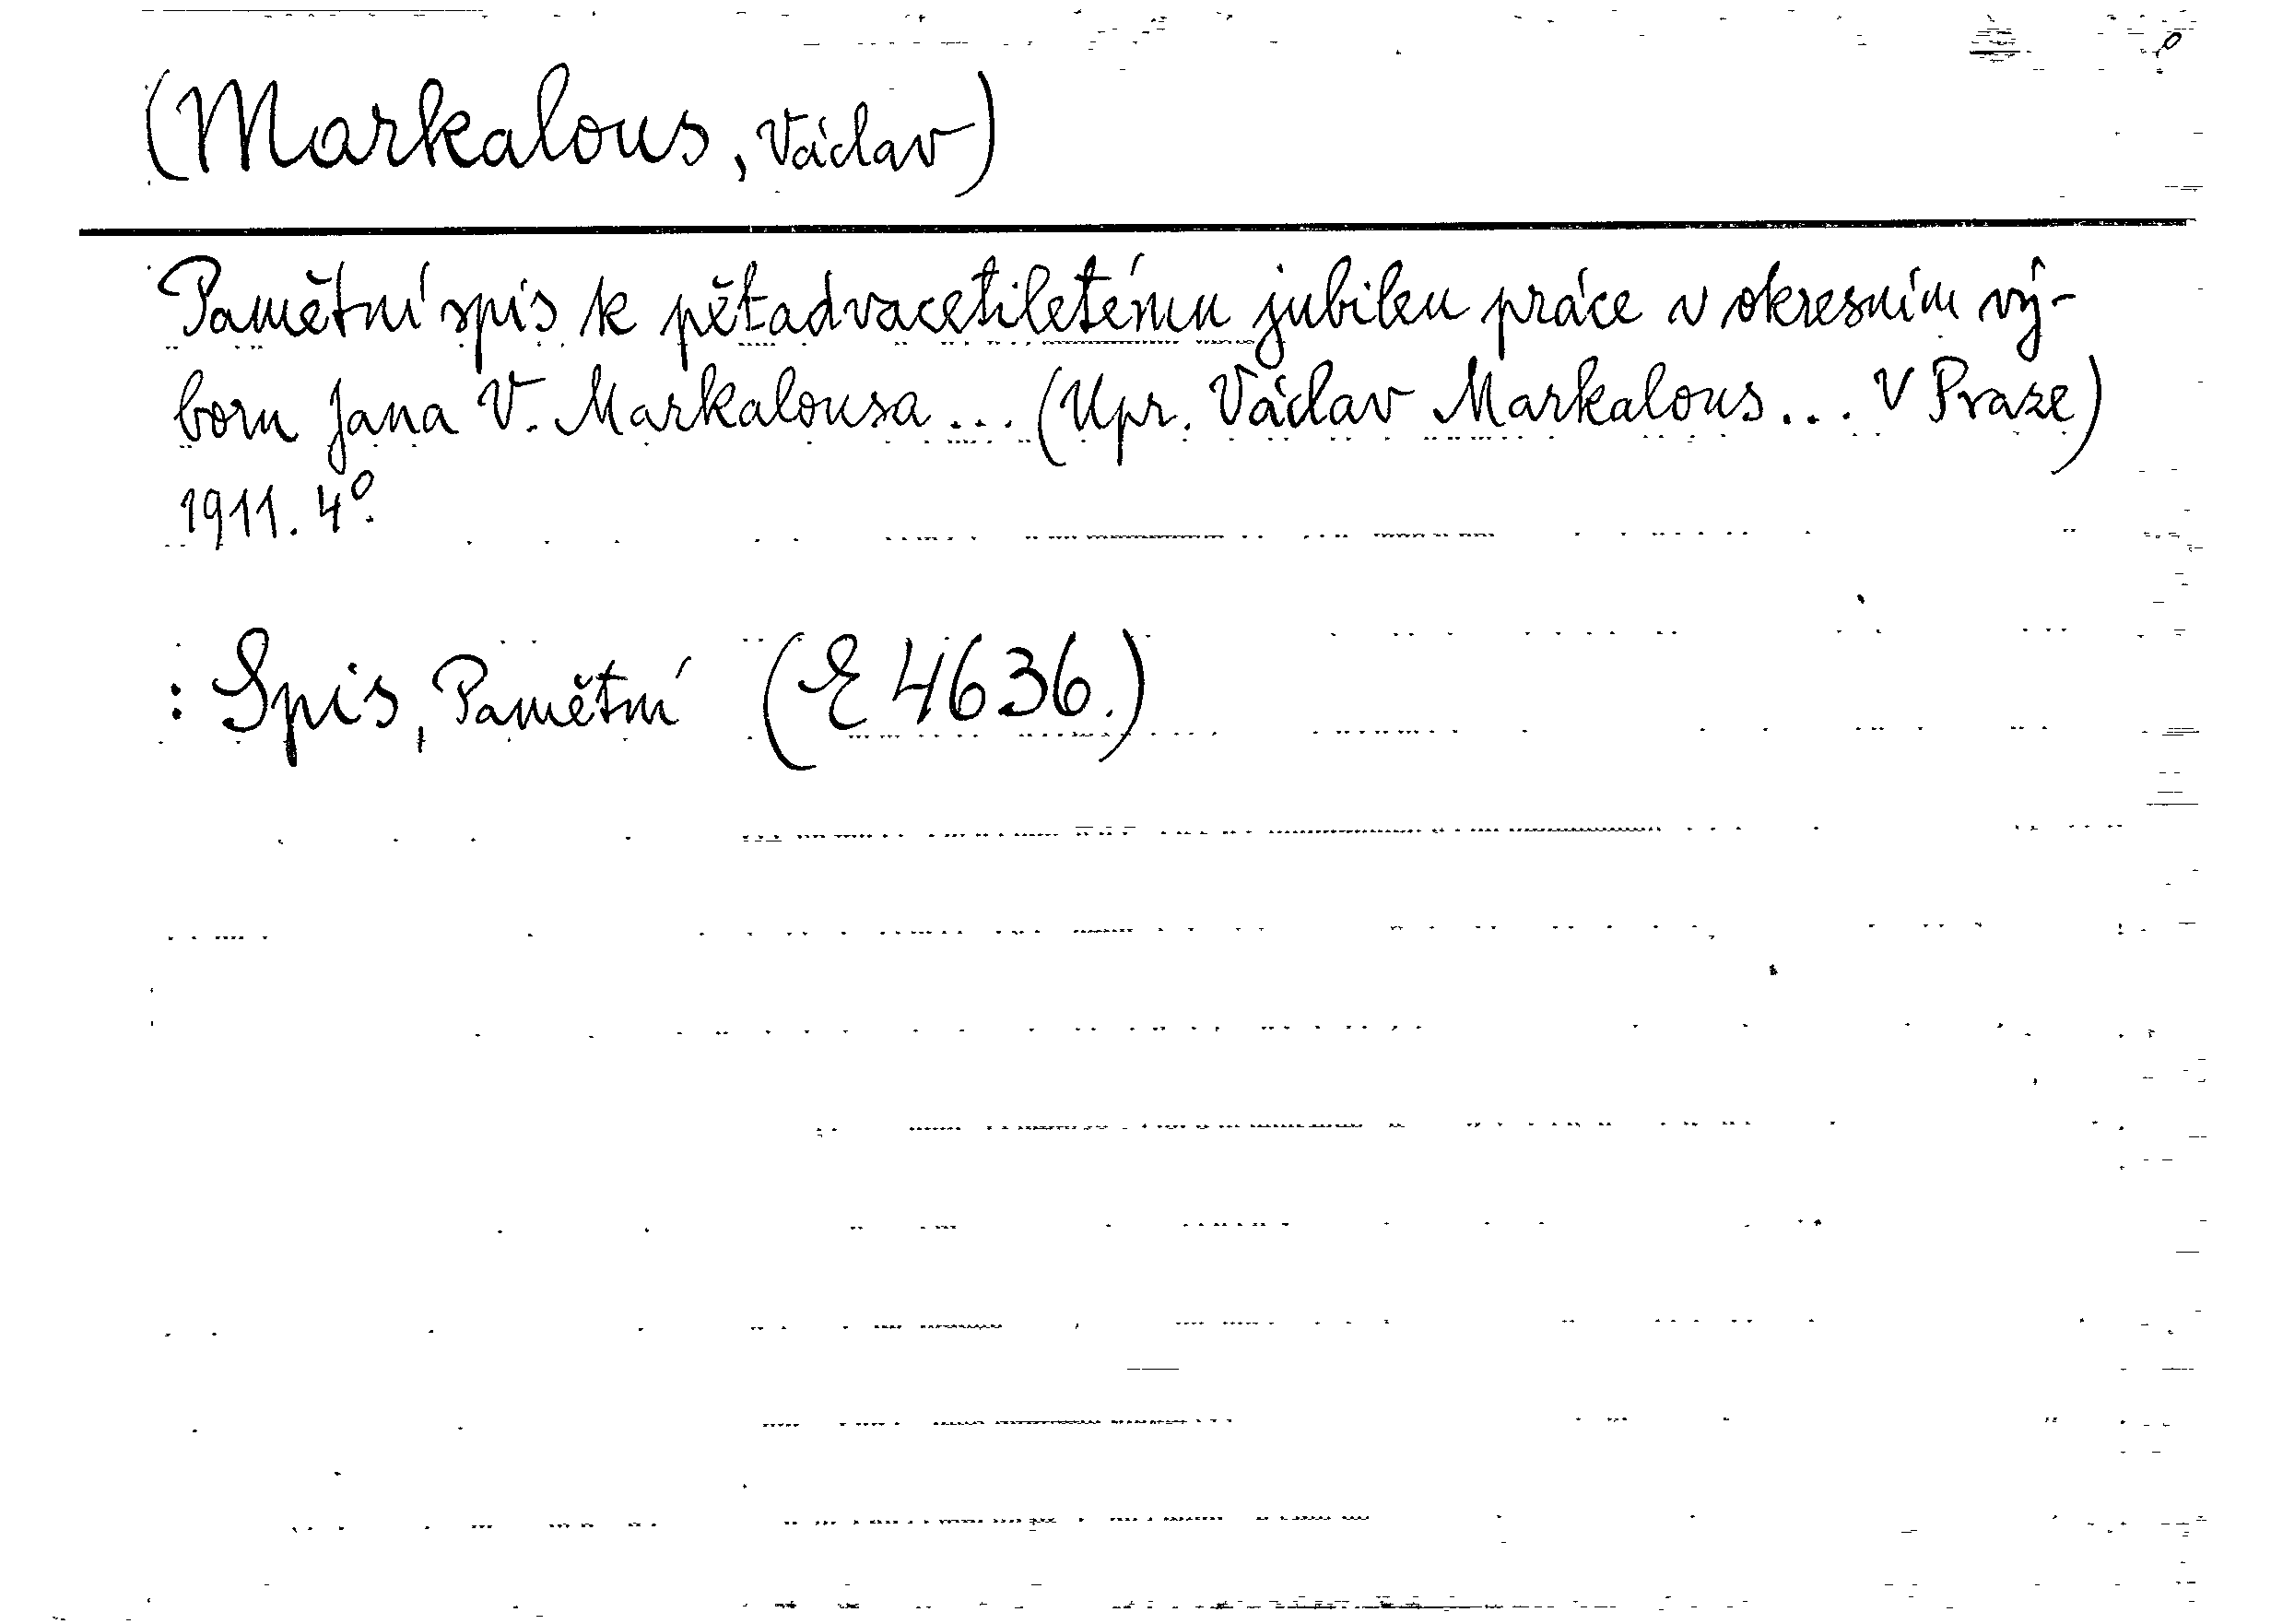 (Markalous, Václav)
Pamětní spis k pětadvacetiletému jubileu práce v okresním vý-
boru Jana V. Markalousa ... (Upr. Václav Markalous ... V Praze)
1911. 4°.
: Spis, Pamětní (E 4636.)